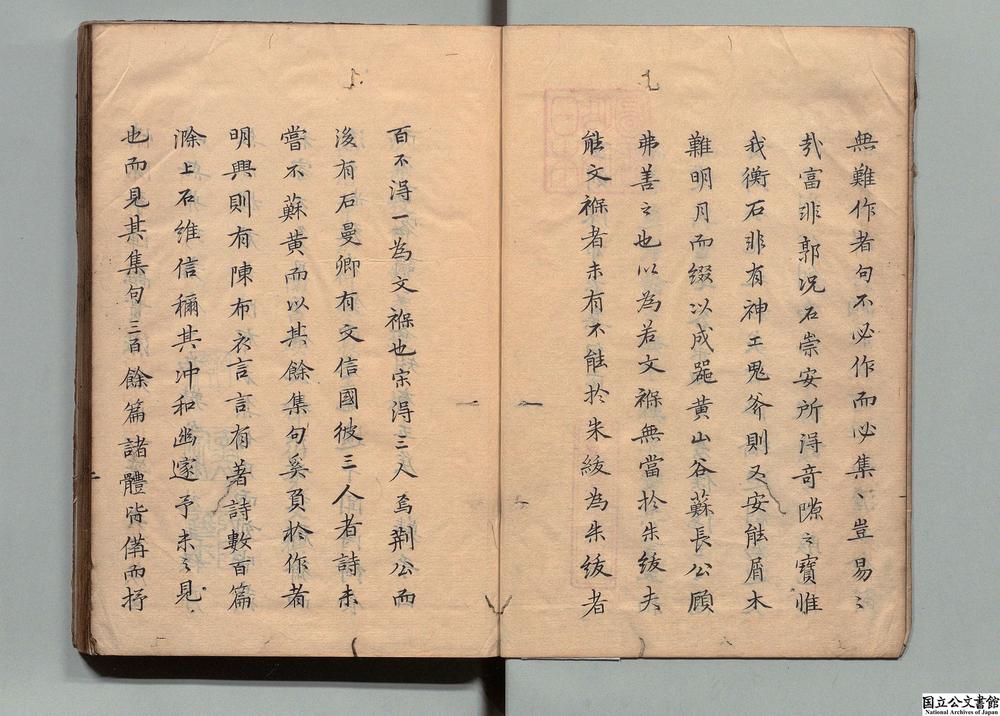 無難作者句不必作而必集、豈易々
哉富非郭况石崇安所得竒隙之寶惟
我衡石非有神工鬼斧則又安能屑木
難明月而綴以成器黄山谷蘇長公顧
弗善之也以為若文褓無當於朱紱夫
能文褓者未有不能於朱紱為朱紱者
百不得一為文褓也宋得三人焉荆公而
後有石曼卿有文信國彼三人者詩未
嘗不蘇黄而以其餘集句奚負於作者
明興則有陳布衣言言有著詩數百篇
滁上石維信稱其冲和幽邃予未之見
也而見其集句三百餘篇諸體皆備而抒
国立公文書館
National Archives of Japan